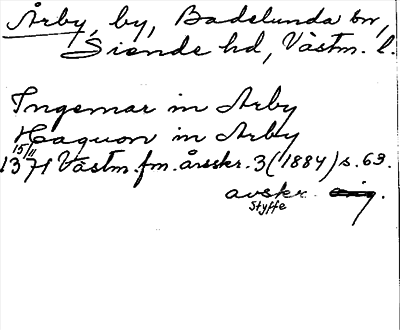 Årby, by, Badelunda sn,
Siende hd, Västm. l.
Ingemar in Arby
Haquon in Arby
15/11
1371 Västm. fm. årsskr. 3 (1884) s. 63.
avskr. orig.
Styffe